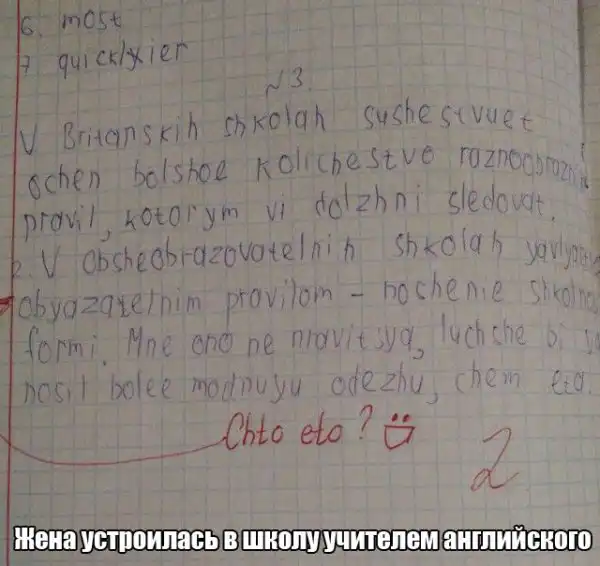 6. most
7 quicklyier
№3.
V Britanskih shkolah sushestvuet
ochen bolshoe kolichestvo raznoobraznih
pravil, kotorym vi dolzhni sledovat.
2. V obsheobrazovatelnih shkolah
obyazatelnim pravilom - noshenie shkolnoi
formi. Mne ono ne nravitsya, luchshe bi
nosit bolee modnuyu odezhu, chem eta.
Chto eto?
2
Жена устроилась в школу учителем английского